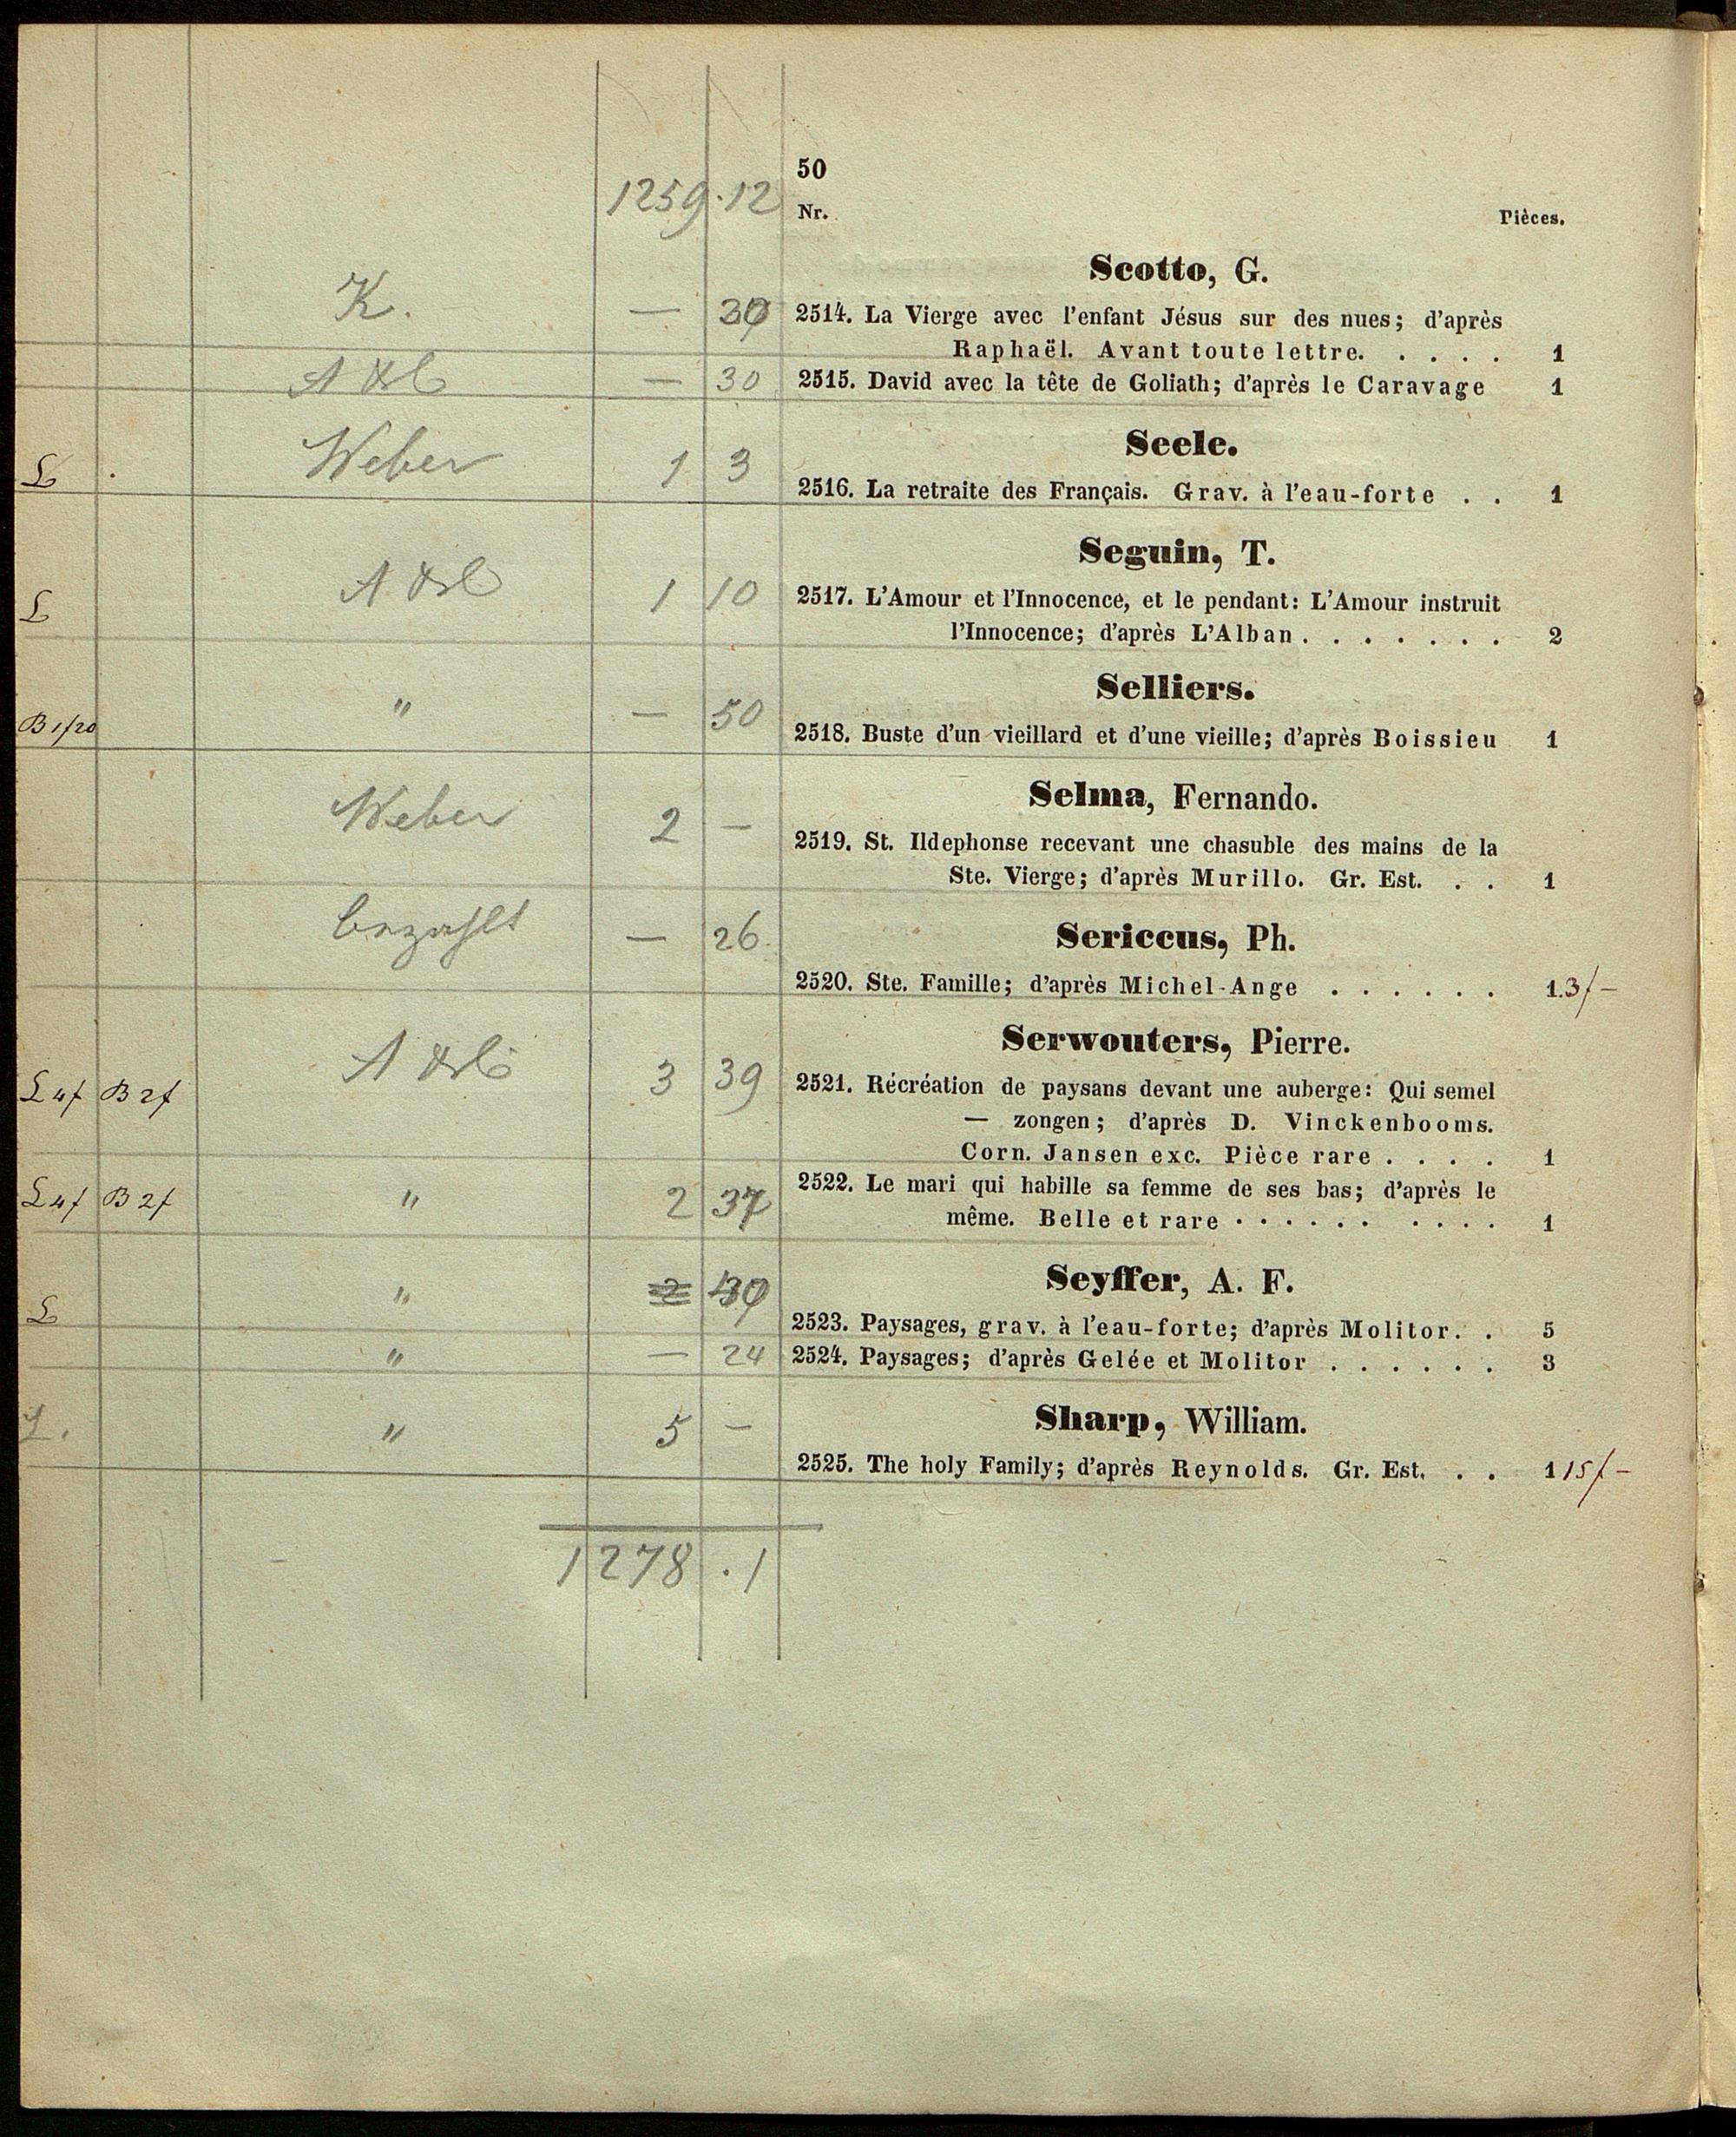 50
1259 . 12 Nr. Pièces.
Scotto, G.
K. — 30 2514. La Vierge avec l'enfant Jésus sur des nues; d'après
Raphaël. Avant toute lettre. . . . . 1
— 30 2515. David avec la tête de Goliath; d'après le Caravage 1
Seele.
L Weber 1 3 2516. La retraite des Français. Grav. à l'eau-forte . . 1
Seguin, T.
L 1 10 2517. L'Amour et l'Innocence, et le pendant: L'Amour instruit
l'Innocence; d'après L'Alban . . . . . . . 2
Selliers.
B 1f20 " — 50 2518. Buste d'un vieillard et d'une vieille; d'après Boissieu 1
Selma, Fernando.
Weber 2 — 2519. St. Ildephonse recevant une chasuble des mains de la
Ste. Vierge; d'après Murillo. Gr. Est. . . 1
Sericcus, Ph.
bezahlt — 26 2520. Ste. Famille; d'après Michel-Ange . . . . . . 1. 3f—
Serwouters, Pierre.
L 4f B 2f 3 39 2521. Récréation de paysans devant une auberge: Qui semel
— zongen; d'après D. Vinckenbooms.
Corn. Jansen exc. Pièce rare . . . . 1
L 4f B 2f " 2 37 2522. Le mari qui habille sa femme de ses bas; d'après le
même. Belle et rare . . . . . . . . . . 1
Seyffer, A. F.
L " 2523. Paysages, grav. à l'eau-forte; d'après Molitor. . 5
" — 24 2524. Paysages; d'après Gelée et Molitor . . . . . . 3
Sharp, William.
L. " 5 — 2525. The holy Family; d'après Reynolds. Gr. Est. . . 1 15f—
1278 . 1